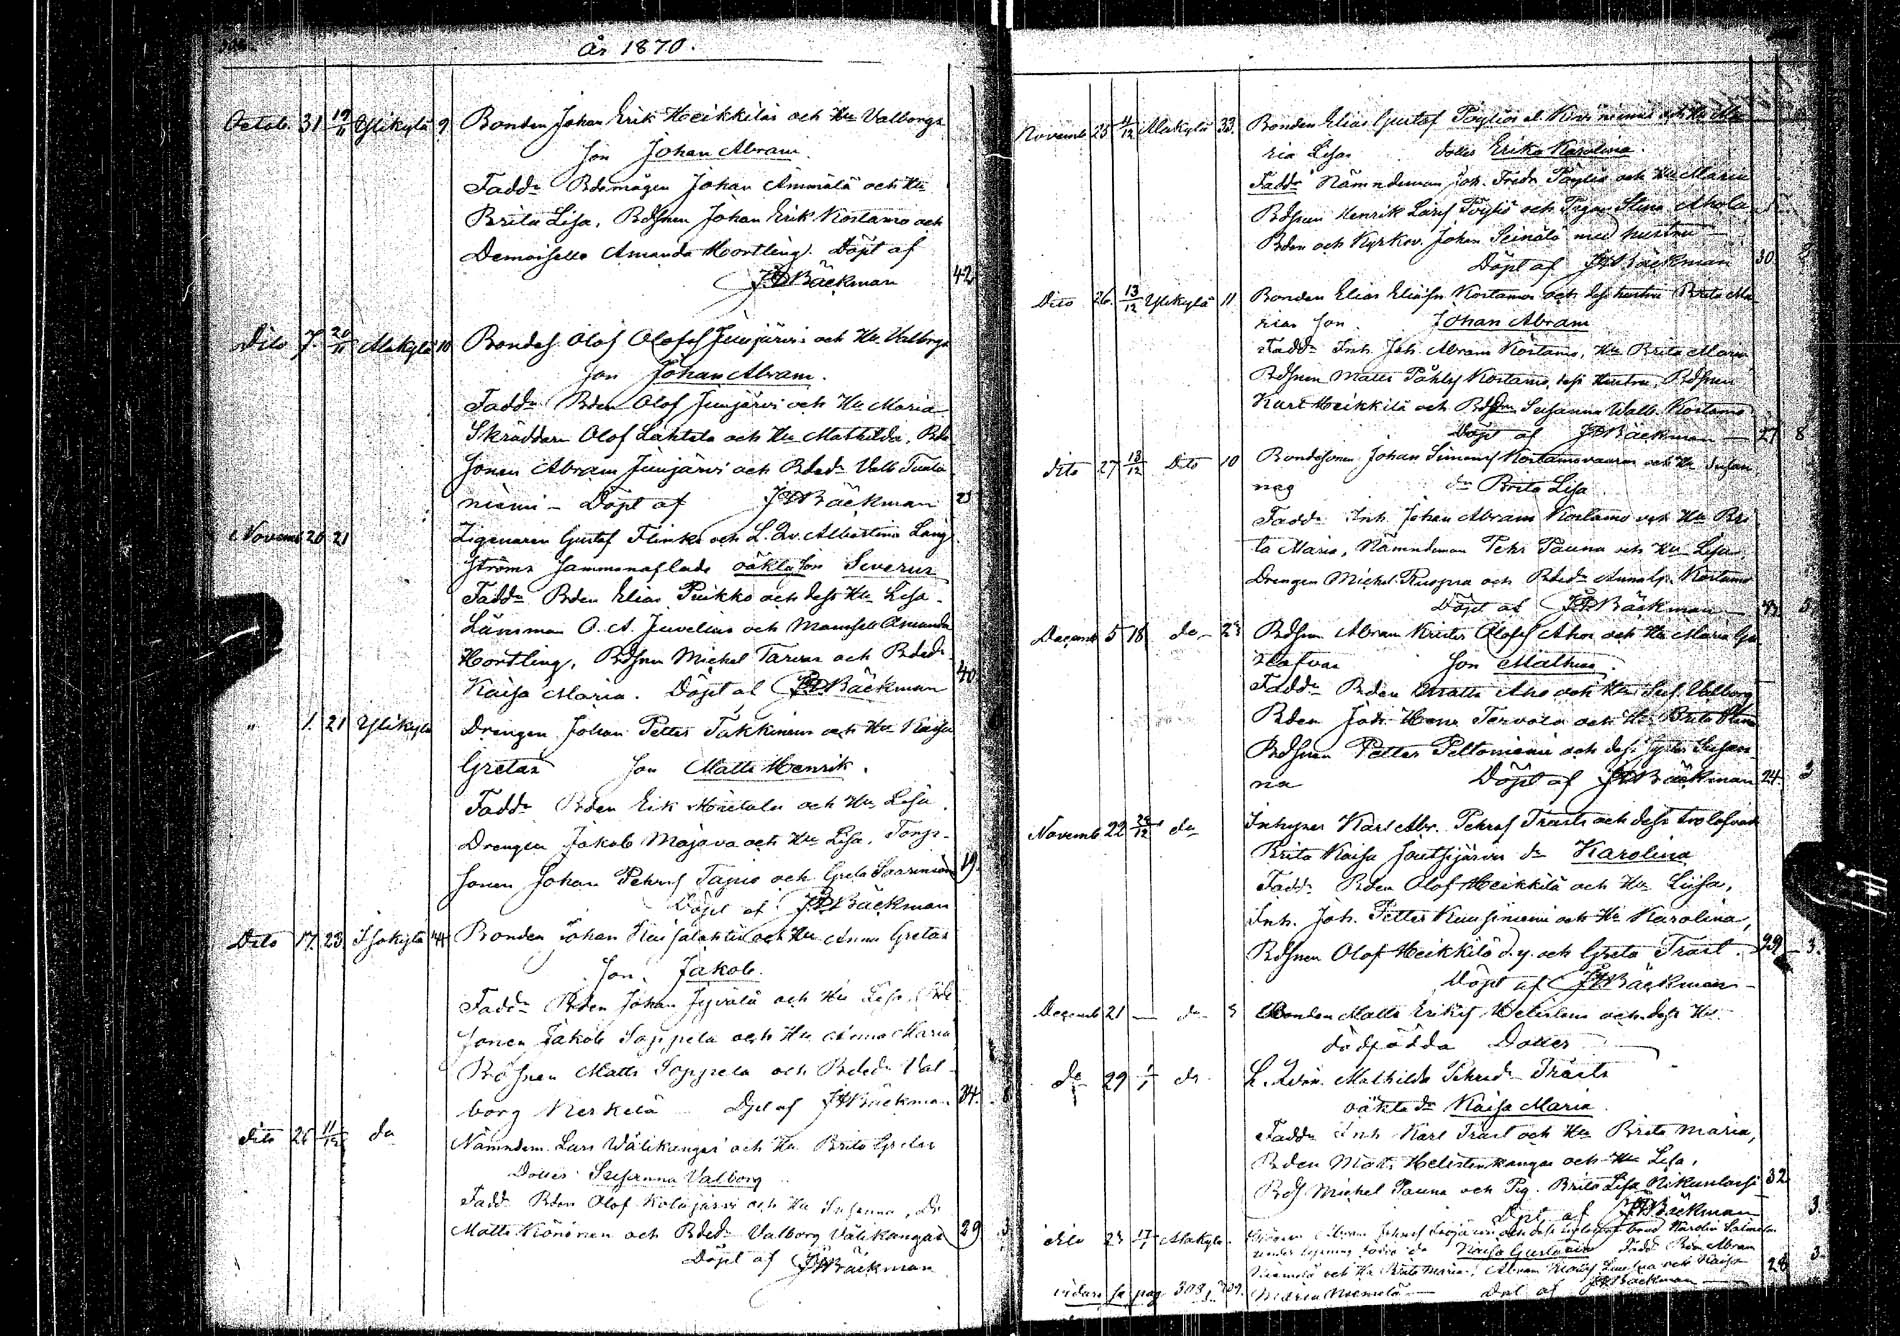 År 1870.
Octob. 31 19/11 Ylikylä 9 Bonden Johan Erik Heikkiläs och Hu Valborgs
Son Johan Abram.
Faddr Bdemågen Johan Ämmälä och Hu
Brita Lisa, Bdsnen Johan Erik Kostamo och
Demoiselle Amanda Hortling. Döpt af
JFBäckman 42
Dito 7. 20/11 Alakylä 10 Bondes. Olof Olofss Jumjärvis och Hu Valborgs
Son Johan Abram.
Faddr Bden Olof Jumjärvi och Hu Maria
Skräddare Olof Lahtela och Hu Mathilda, Bde
sonen Abram Jumjärvi och Bdedr Valb
niemi – Döpt af JFBäckman 23
Novemb 26 21 Zigenaren Gustaf Flink och L. Qv. Albertina Lång
ströms sammanaflade oäkta Son Severus
Faddr Bden Elias Puikko och dess Hu Lisa.
Länsman O. A. Juvelius och Mamsell Amanda
Hortling, Bdsnen Michel Tarvas och Bdedr
Kaisa Maria. Döpt af JFBäckman 40
" 1. 21 Ylikylä Drengen Johan Petter Takkinens och Hu Kaisa
Gretas Son Matts Henrik.
Faddr Bden Erik Hietala och Hu Lisa.
Drengen Jakob Majava och Hu Lisa, Torp-
sonen Johan Pehrss Tapio och Greta Saarinen 19.
Döpt af JFBäckman
Dito 17. 23 Isokylä 44 Bonden Johan Kaisalahtis och Hu Anna Gretas
Son Jakob.
Faddr Bden Johan Jyvälä och Hu Lisa, Bde
sonen Jakob Soppela och Hu Anna Maria
Bdsnen Matts Soppela och Bdedr Val-
borg Kerkelä Dpt af JFBäckman 34.
dito 26 11/12 do Nämndem. Lars Wälikangas och Hu Brita Gretas
Dotter Susanna Valborg
Fadd. Bden Olof Kolajärvi och Hu Susanna, Dr
Matts Könönen och Bdedr Valborg Välikangas 29
Döpt af JFBäckman
Novemb 25 4/12 Alakylä 33. Bonden Elias Gustaf Pöyliös el. och Hu Ma
rias Lisas dotter Erika Karolina.
Faddr Nämndeman Joh. Fredr Pöyliö och Hu Maria
Bdsnen Henrik Larss Pöyliö och Pigan Stina Ahola
Bden och Kyrkov. Johan Seinälä med hustru
Döpt af JFBäckman 30 2
Dito 26. 13/12 Ylikylä 11 Bonden Elias Eliass Kostamos och dess hustru Brita Ma
rias Son Johan Abram
Faddr Inh. Joh. Abram Kostamo, Hu Brita Maria
Bdsnen Matts Påhlss Kostamo, dess Hustru, Bdsnen
Karl Heikkilä och Bdsn Susanna Walb. Kostamo
Döpt af JFBäckman 27 8
dito 27 13/12 Dito 10 Bondesonen Johan Simonss Kostamovaaras och Hu Susan
nas dr Brita Lisa
Faddr Inh. Johan Abram Kostamo och Hu Bri
ta Maria, Nämndeman Pehr Pauna och Hu Lisa
Drengen Michel Ruoppa och Bdedr Anna Gr. Kostamo
Döpt af JFBäckman 5
Decemb 5 18 do 23 Bdsnen Abram Krister Olofss Ahos och Hu Maria Gu
stafvas Son Mathias.
Faddr Bden Matts Aho och Hu Sus. Valborg
Bden Joh. Henr Tervola och Hu Brita Stina
Bdsnen Petter Peltoniemi och dess syster Susan
na Döpt af JFBäckman 24. 3
Novemb 22 26/12 do Inhyses Karl Abr. Pehrss Trasts och dess trolofvade
Brita Kaisa Joutsijärvis dr Karolina
Faddr Bden Olof Heikkilä och Hu Liisa,
Inh. Joh. Petter Kuusiniemi och Hu Karolina,
Bdsnen Olof Heikkilä d.y. och Greta Trast. 29 3.
Döpt af JFBäckman
Decemb 21 — do 3 Bonden Matts Erikss och dess Hu
dödfödda Dotter
do 29 1/1 do L. Qvin. Mathilda Pehrsdr Trasts
oäkta dr Kaisa Maria
Faddr Inh. Karl Trast och Hu Brita Maria,
Bden Matts Helistenkangas och Hu Lisa,
Bds Michel Pauna och Pig. Brita Lisa 32
Dpt af JFBäckman 3.
dito 23 Alakylä Abram Johanss
Kaisa Gustava Fadd. Bden Abram
Niemelä och Hu Brita Maria, Abram och Kaisa 28 3.
vidare se pag 308, 309. Maria Niemelä — Dpt af JFBäckman